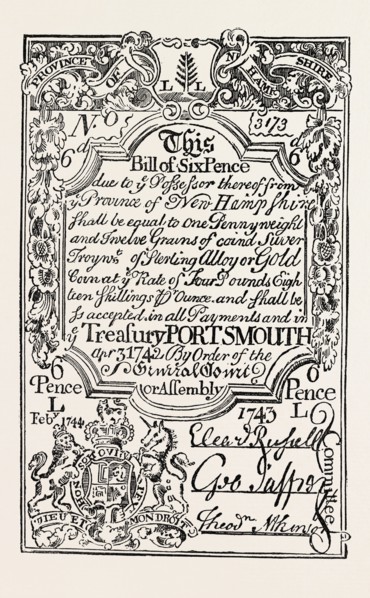 PROVINCE OF NEW HAMPSHIRE
L L
No (3173)
6d 6d
This
Bill of Six Pence
due to ye Possessor thereof from
ye Province of New Hampshire
shall be equal to one Pennyweight
and Twelve Grains of coind Silver
Troy wt. of Sterling Alloy or Gold
Coin at ye Rate of Four Pounds Eigh
teen Shillings ⅌ Ounce. and shall be
so accepted in all Payments and in
ye Treasury PORTSMOUTH
Apr 3 1742 By Order of the
General Court
or Assembly
6 Pence L
6 Pence L
Feb. 1744
1743
Elea. Russell
Geo Jaffrey
Theodr. Atkinson
Committee
HONI SOIT QUI MAL
DIEU ET MON DROIT